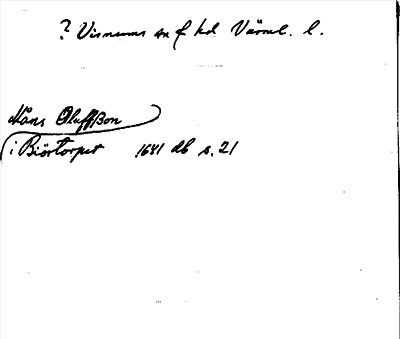 ? Visnums sn f hd Värml. l.
Håns Oluffßon
i Biörtorpet 1641 db s. 21